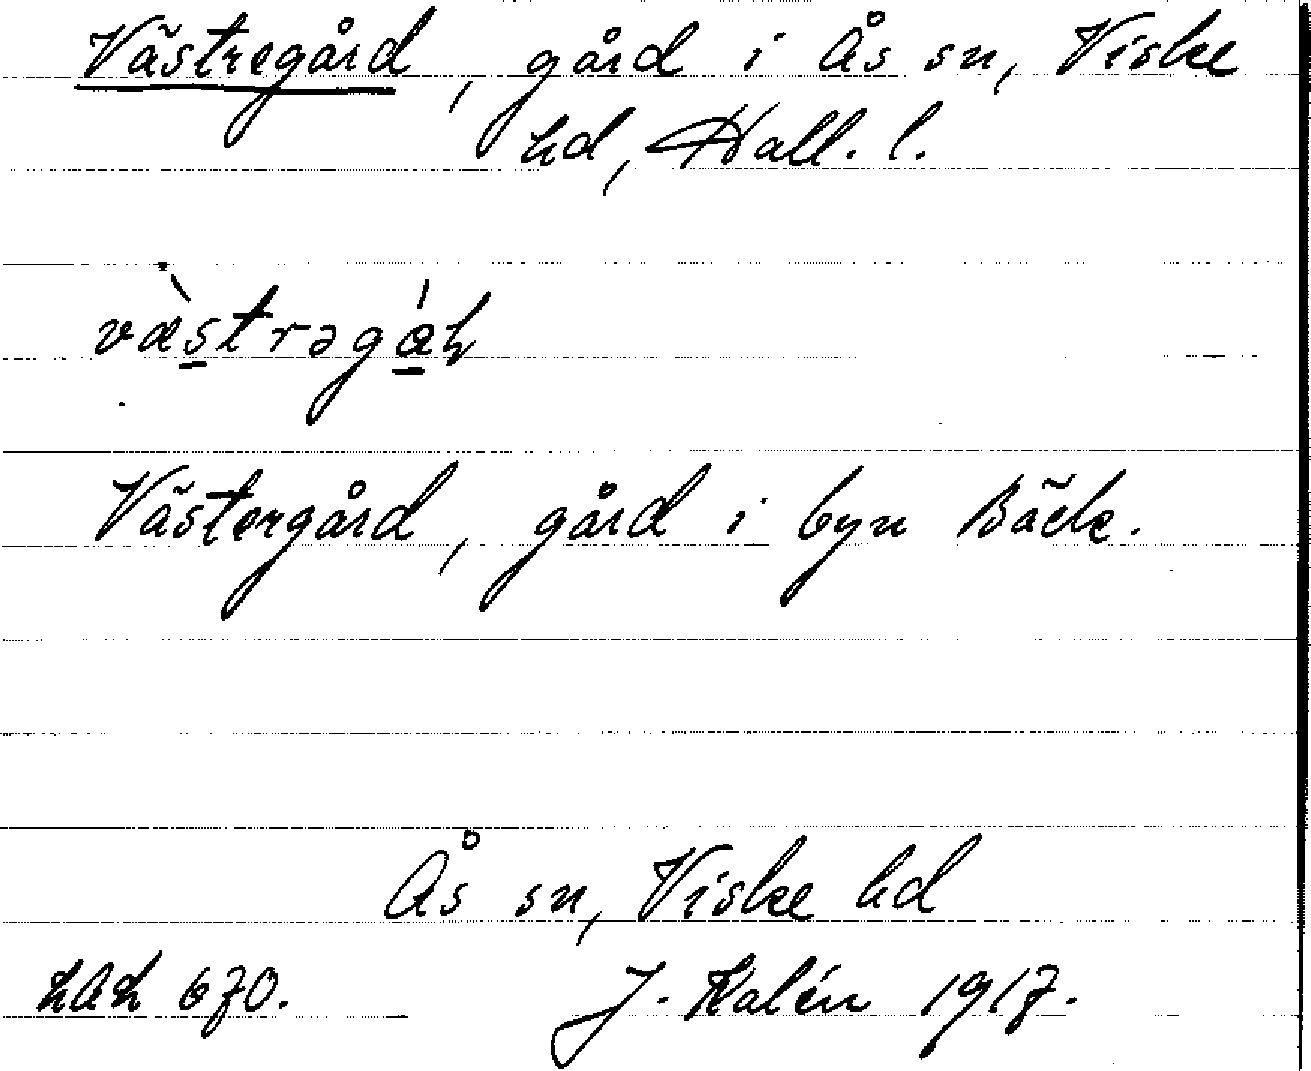 Västregård, gård i Ås sn, Viske
hd, Hall. l.
västrəgáh
Västergård, gård i byn Bäck.
Ås sn, Viske hd
670.
J. Kalén 1917.